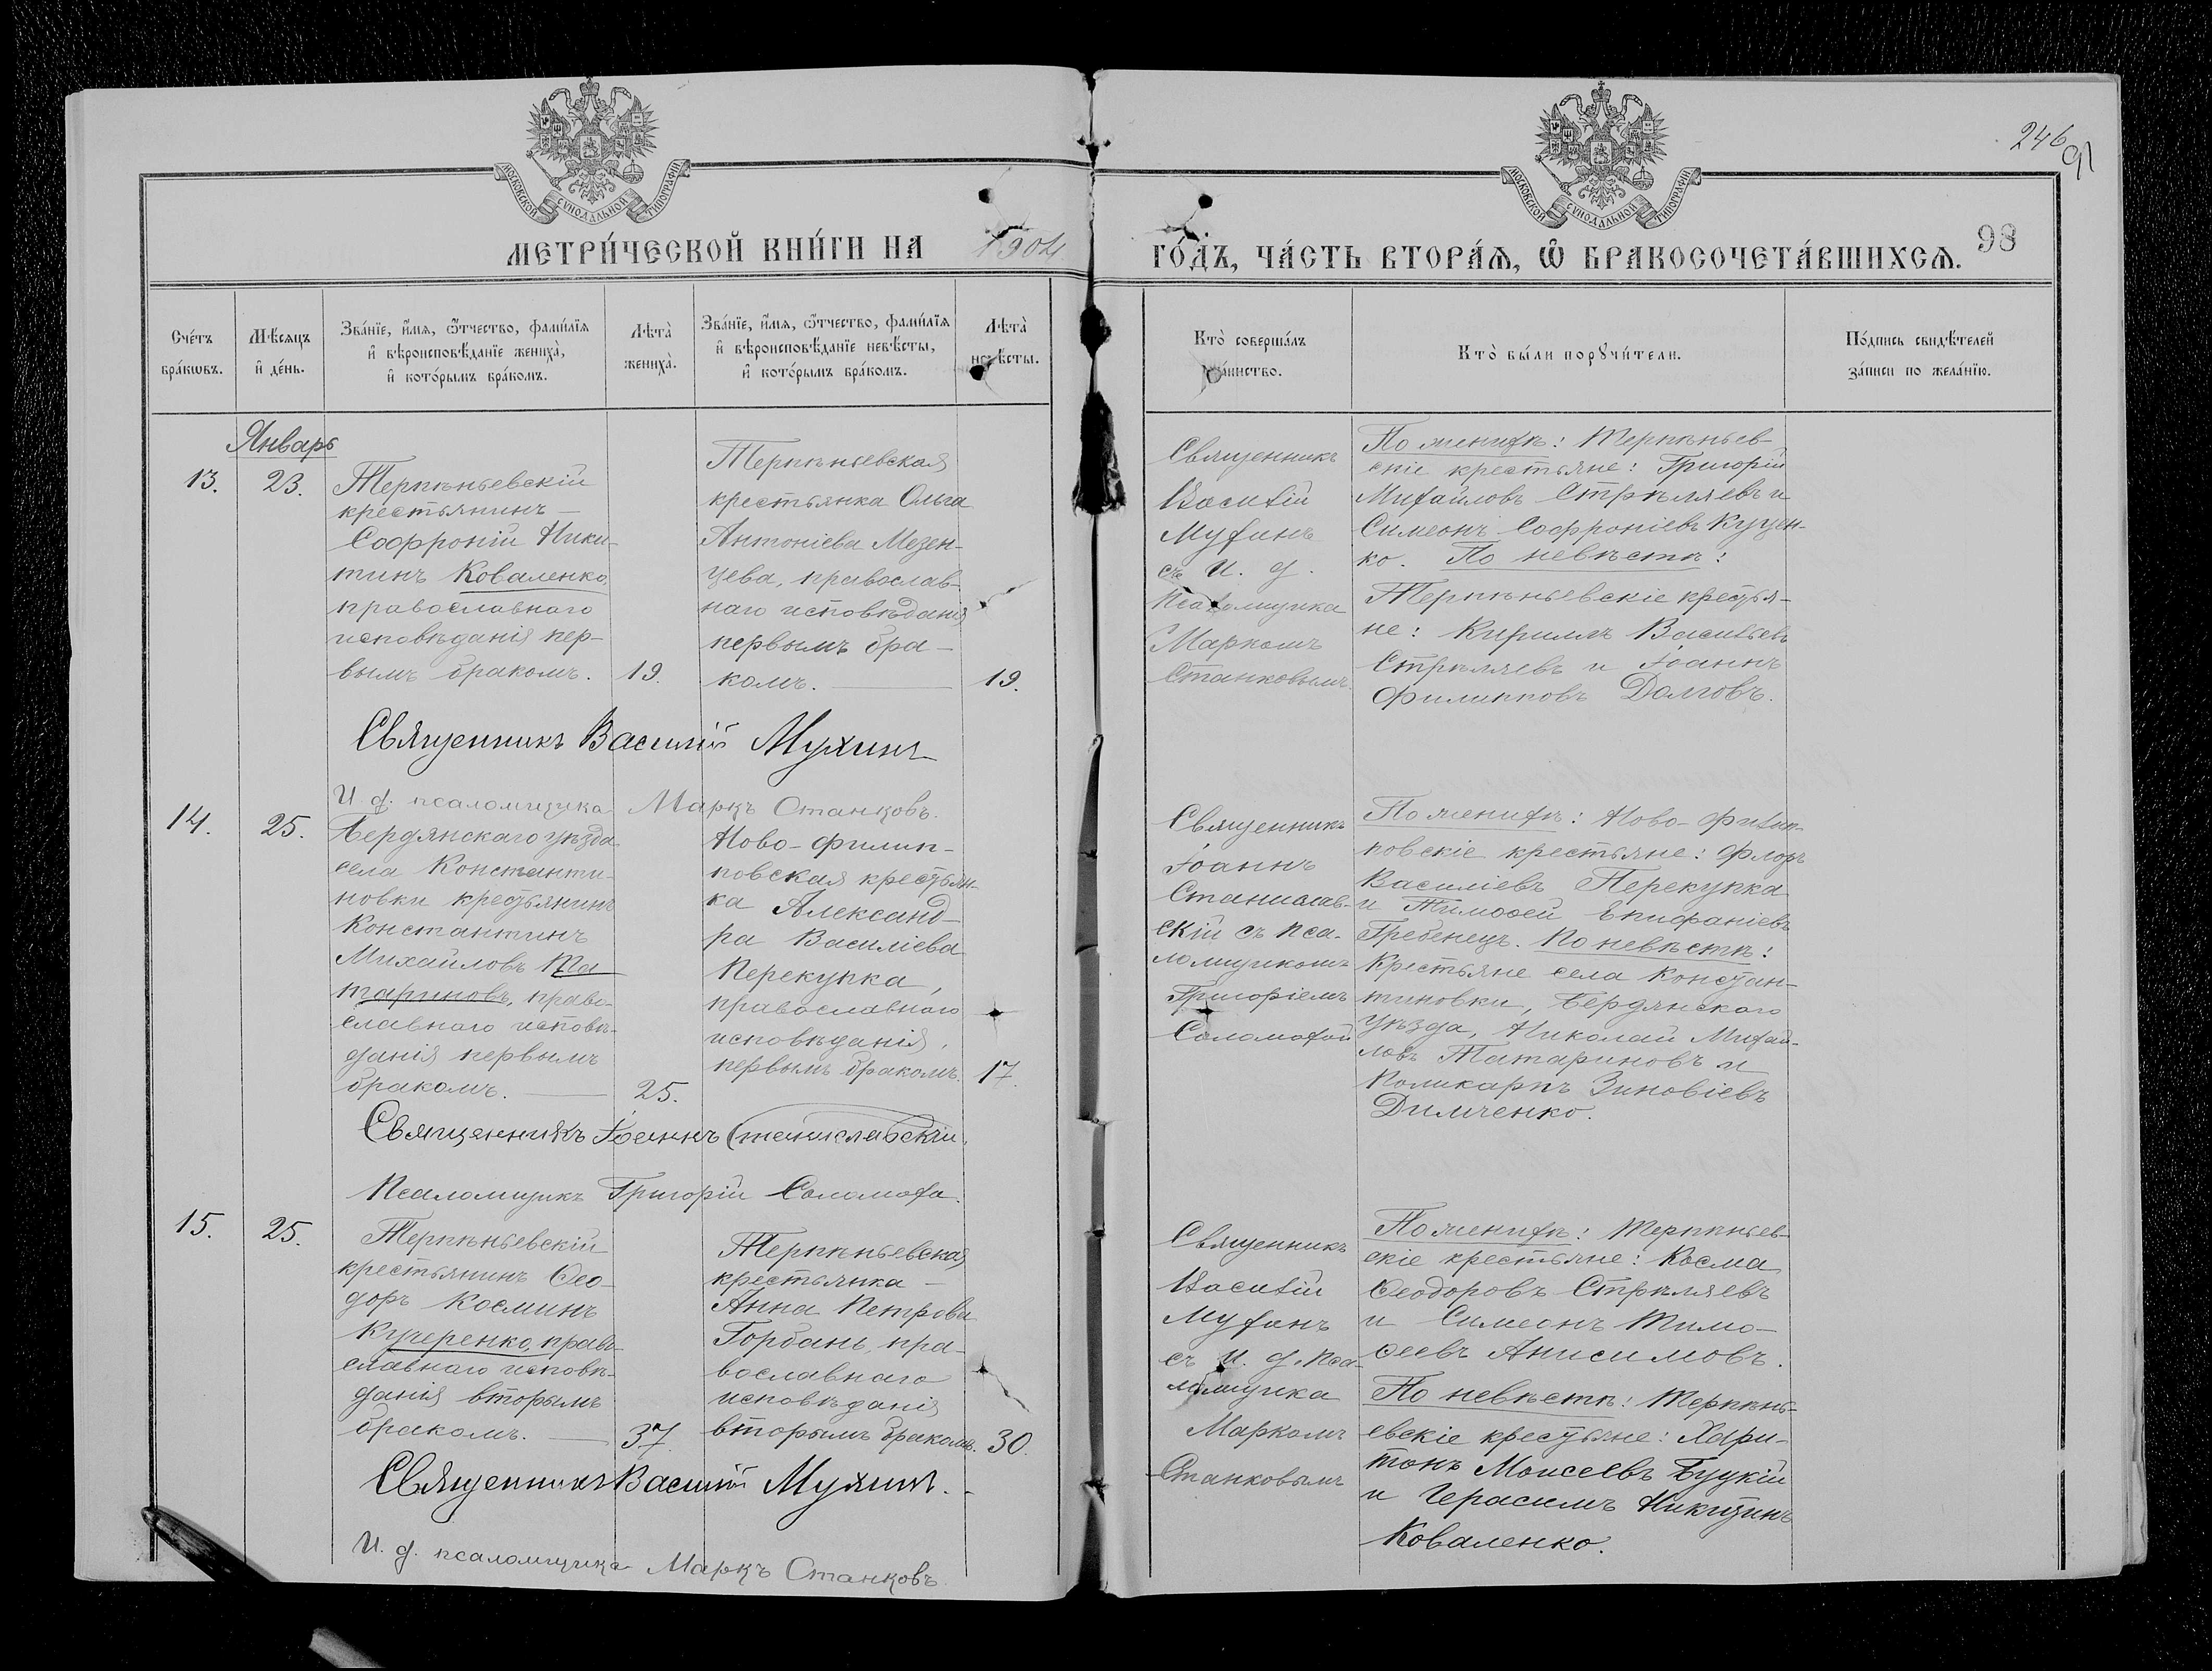 246
91
98
МОСКОВСКОЙ СУНОДАЛЬНОЙ ТИПОГРАФІИ
МОСКОВСКОЙ СУНОДАЛЬНОЙ ТИПОГРАФІИ
МЕТРИ́ЧЕСКОЙ КНИ́ГИ НА 1904
ГО́ДЪ, ЧА́СТЬ ВТОРА́Ѧ, Ѽ БРАКОСОЧЕТА́ВШИХСѦ.
Сче́тъ
бра́кѡвъ.
Мѣ́сѧцъ
и҆ де́нь.
Зва́нїе, и҆́мѧ, ѻ҆́тчество, фами́лїѧ
и҆ вѣроисповѣ́данїе жениха̀,
и҆ кото́рымъ бра́комъ.
Лѣта̀
жениха̀.
Зва́нїе, и҆́мѧ, ѻ҆́тчество, фами́лїѧ
и҆ вѣроисповѣ́данїе невѣ́сты,
и҆ кото́рымъ бра́комъ.
Лѣта̀
невѣ́сты.
Кто̀ соверша́лъ
та́инство.
Кто̀ бы́ли порꙋчи́тели.
По́дпись свидѣ́телей
за́писи по жела́нїю.
Январь
13.
23.
Терпѣньевскій
крестьянинъ —
Софроній Ники-
тинъ Коваленко,
православнаго
исповѣданія пер-
вымъ бракомъ.
19.
Терпѣньевская
крестьянка Ольга
Антоніева Мезен-
цева, православ-
наго исповѣданія
первымъ бра-
комъ.
19.
Священникъ
Василій
Мухинъ
съ И. д.
псаломщика
Маркомъ
Станковымъ.
По женихѣ: Терпѣньев-
скіе крестьяне: Григорій
Михайловъ Стрѣляевъ и
Симеонъ Софроніевъ Куцен-
ко. По невѣстѣ:
Терпѣньевскіе крестья-
не: Кириллъ Васильевъ
Стрѣляевъ и Іоаннъ
Филипповъ Долговъ.
Священникъ Василій Мухинъ
И. д. псаломщика Маркъ Станковъ.
14.
25.
Бердянскаго уѣзда
села Константи-
новки крестьянинъ
Константинъ
Михайловъ Та-
тариновъ, право-
славнаго исповѣ-
данія первымъ
бракомъ.
25.
Ново-Филип-
повская крестьян-
ка Александ-
ра Василіева
Перекупка,
православнаго
исповѣданія,
первымъ бракомъ.
17.
Священникъ
Іоаннъ
Станислав-
скій съ пса-
ломщикомъ
Григоріемъ
Соломахой
По женихѣ: Ново-Филип-
повскіе крестьяне: Флоръ
Василіевъ Перекупка
и Тимоѳей Епифаніевъ
Гребенецъ. По невѣстѣ:
Крестьяне села Констан-
тиновки, Бердянскаго
уѣзда, Николай Михай-
ловъ Татариновъ и
Поликарпъ Зиновіевъ
Димченко.
Священникъ Іоаннъ Станиславскій.
Псаломщикъ Григорій Соломаха.
15.
25.
Терпѣньевскій
крестьянинъ Ѳео-
доръ Косминъ
Кучеренко, право-
славнаго исповѣ-
данія вторымъ
бракомъ.
37
Терпѣньевская
крестьянка —
Анна Петрова
Горбань, пра-
вославнаго
исповѣданія
вторымъ бракомъ.
30.
Священникъ
Василій
Мухинъ
съ И. д. пса-
ломщика
Маркомъ
Станковымъ
По женихѣ: Терпѣньев-
скіе крестьяне: Косма
Ѳеодоровъ Стрѣляевъ
и Симеонъ Тимо-
ѳеевъ Анисимовъ.
По невѣстѣ: Терпѣнь-
евскіе крестьяне: Хари-
тонъ Моисеевъ Буцкій
и Герасимъ Никитинъ
Коваленко.
Священникъ Василій Мухинъ.
И. д. псаломщика Маркъ Станковъ